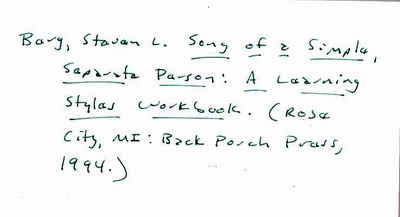 Barg, Stevan L. Song of a Simple,
Separate Person: A Learning
Styles Workbook. (Rose
City, MI: Back Porch Press,
1994.)